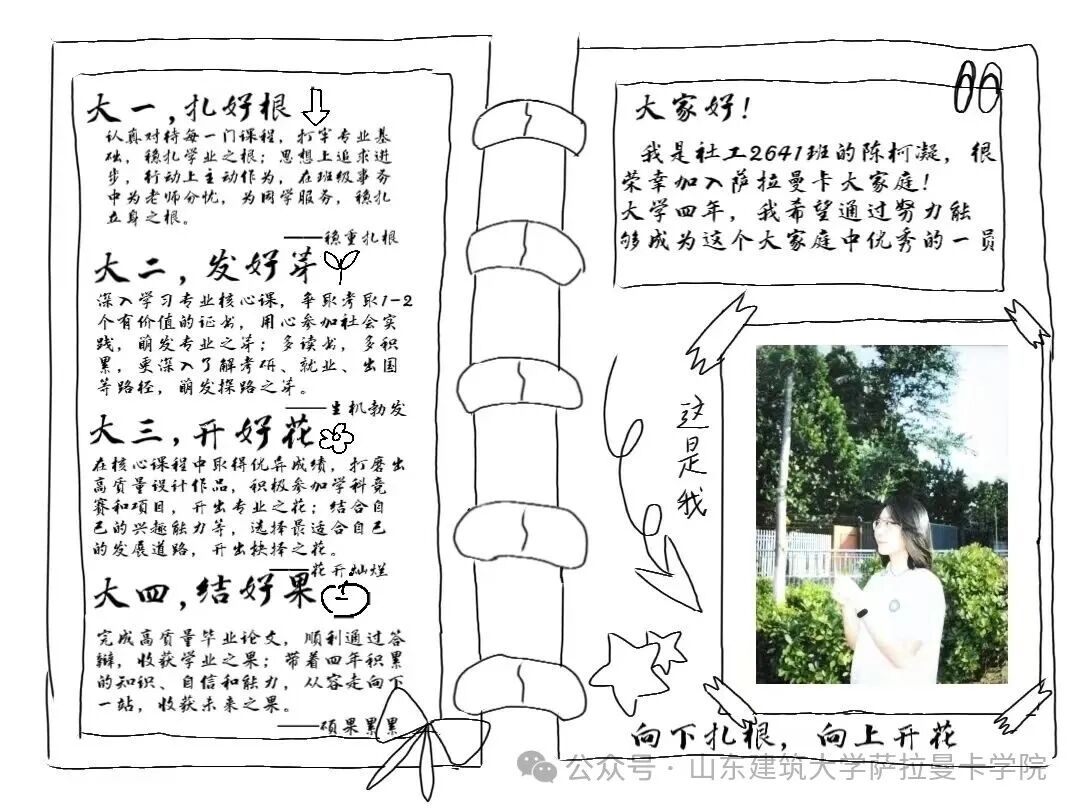 大一，扎好根
认真对待每一门课程，打牢专业基
础，稳扎学业之根；思想上追求进
步，行动上主动作为，在班级事务
中为老师分忧，为同学服务，稳扎
立身之根。
——稳重扎根
大二，发好芽
深入学习专业核心课，争取考取1-2
个有价值的证书，用心参加社会实
践，萌发专业之芽；多读书，多积
累，更深入了解考研、就业、出国
等路径，萌发探路之芽。
——生机勃发
大三，开好花
在核心课程中取得优异成绩，打磨出
高质量设计作品，积极参加学科竞
赛和项目，开出专业之花；结合自
己的兴趣能力等，选择最适合自己
的发展道路，开出抉择之花。
——花开灿烂
大四，结好果
完成高质量毕业论文，顺利通过答
辩，收获学业之果；带着四年积累
的知识、自信和能力，从容走向下
一站，收获未来之果。
——硕果累累
大家好！
我是社工2641班的陈柯凝，很
荣幸加入萨拉曼卡大家庭！
大学四年，我希望通过努力能
够成为这个大家庭中优秀的一员
这是我
向下扎根，向上开花
公众号·山东建筑大学萨拉曼卡学院